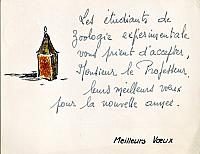 Les étudiants de
Zoologie expérimentale
vous prient d'accepter,
Monsieur le Professeur,
leurs meilleurs vœux
pour la nouvelle année.
Meilleurs Vœux